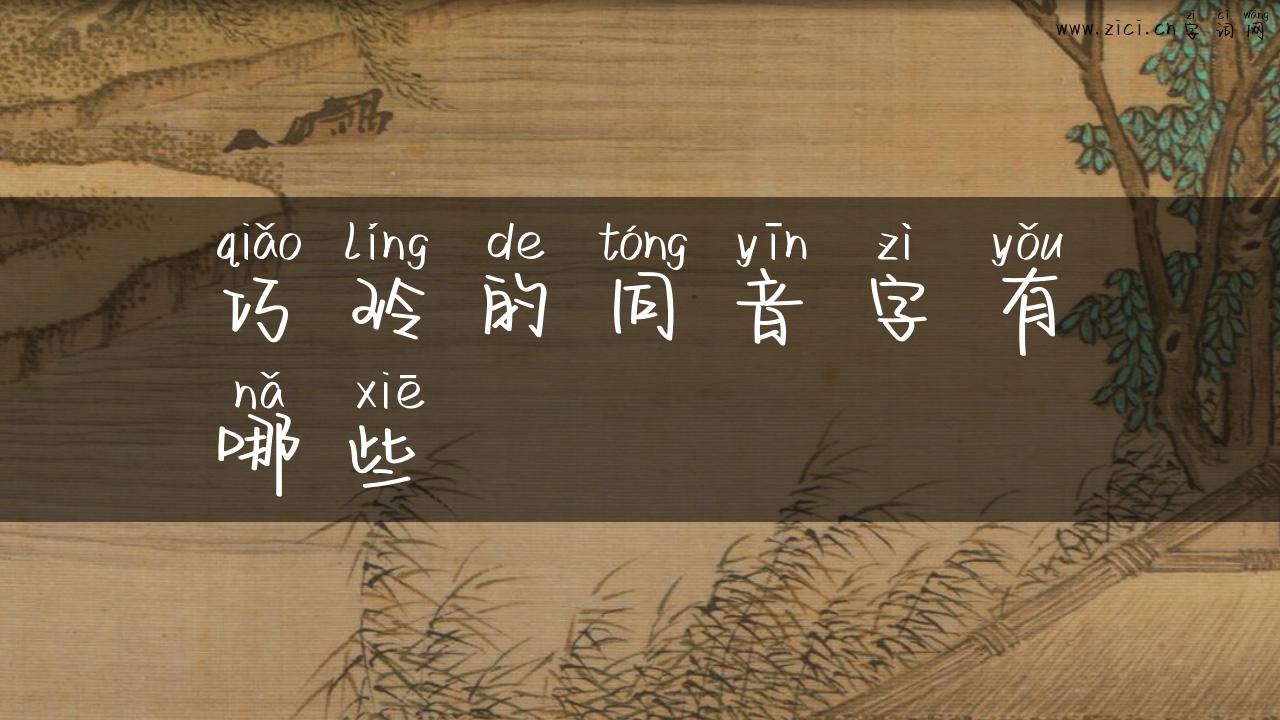 zì cí wǎng
www.zici.cn字词网
qiǎo líng de tóng yīn zì yǒu
巧玲的同音字有
nǎ xiē
哪些